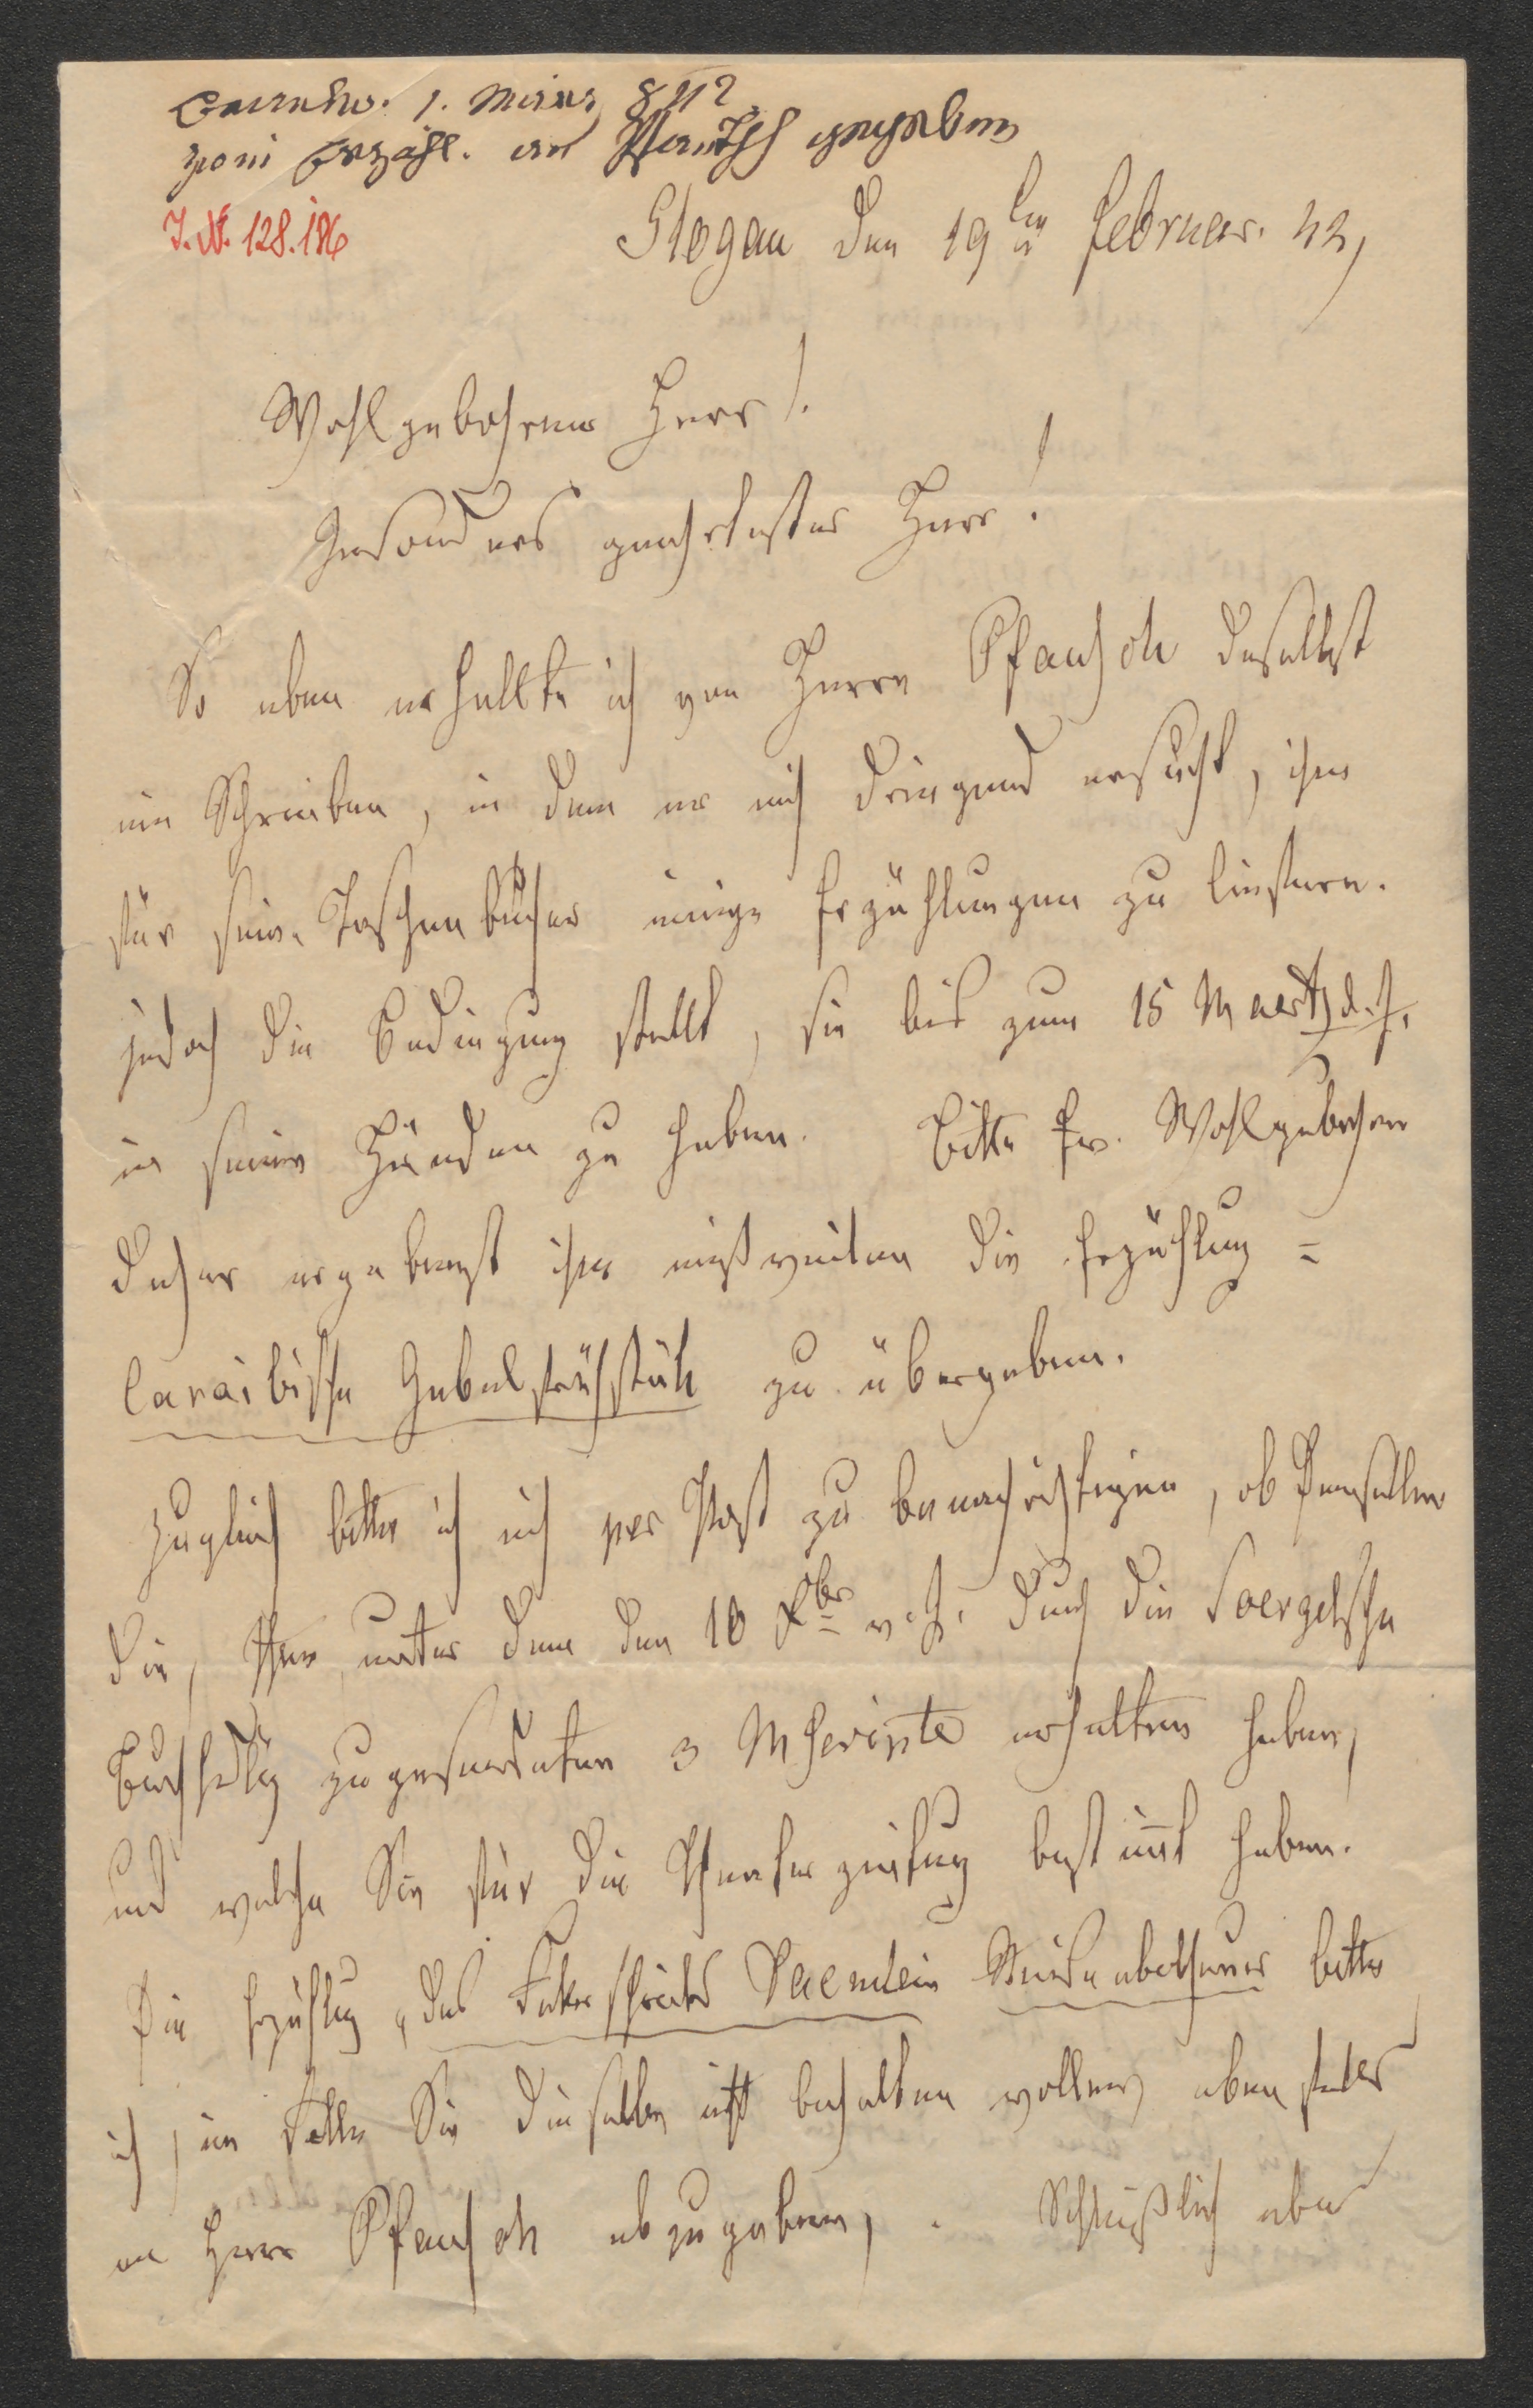 Beantw. 1. März 842
zwei Erzähl. an Pfautsch gegeben
J. N. 128.186
Glogau den 19ten Februar. 42,
Wohlgebohrener Herr!
Besonders geehrtester Herr!
So eben erhallte ich von Herrn Pfautsch daselbst
ein Schreiben, in dem er mich dringend ersucht, ihm
für seine Taschenbücher einige Erzählungen zu liefern.
jedoch die Bedingung stellt, sie bis zum 15 Maertz d. J.
in seinen Händen zu haben. Bitte Ew. Wohlgebohren
daher ergebenst ihm die Erzählung =
Caraibische Gabelfrühstück zu übergeben.
Zugleich bitte ich mich per Post zu benachrichtigen, ob Dieselben
die, Ihnen unter dem den 10 Xbr v. J. durch die
Buchhdlg zugesendeten 3 Mscripte erhalten haben,
und welche Sie für die Theaterzeitung bestimmt haben.
Die Erzählung „das
ich, im Falle Sie dieselbe nicht behalten wollen, ebenfalls
an Herrn Pfautsch abzugeben, . Schlüßlich aber